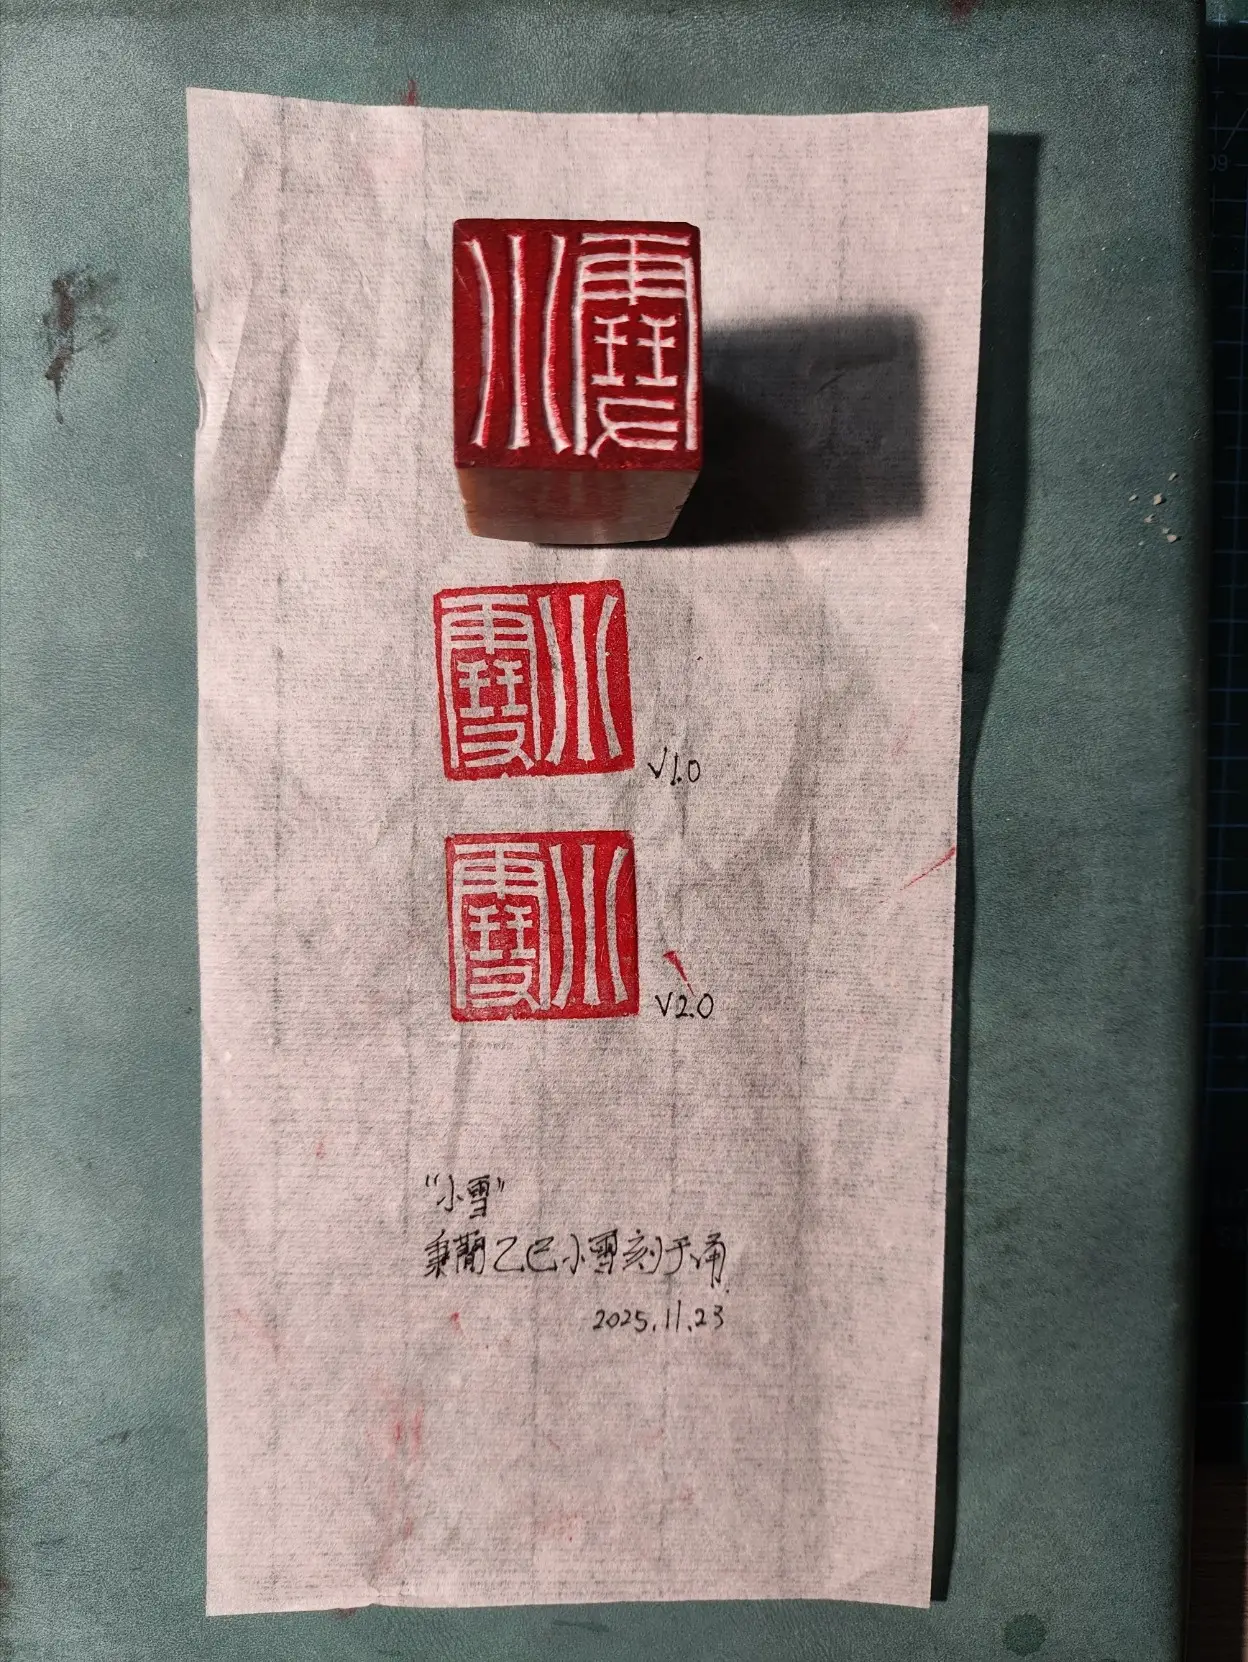 小雪
V1.0
小雪
V2.0
"小雪"
秉蘭乙巳小雪刻于甬
2025.11.23